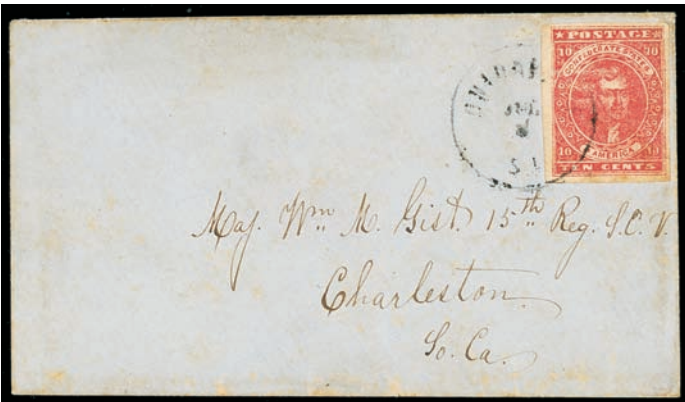 ★POSTAGE★
10 10
CONFEDERATE STATES
10 10
AMERICA
TEN CENTS
Maj. Wm M. Gist 15th Reg. S.C.V.
Charleston
So. Ca.